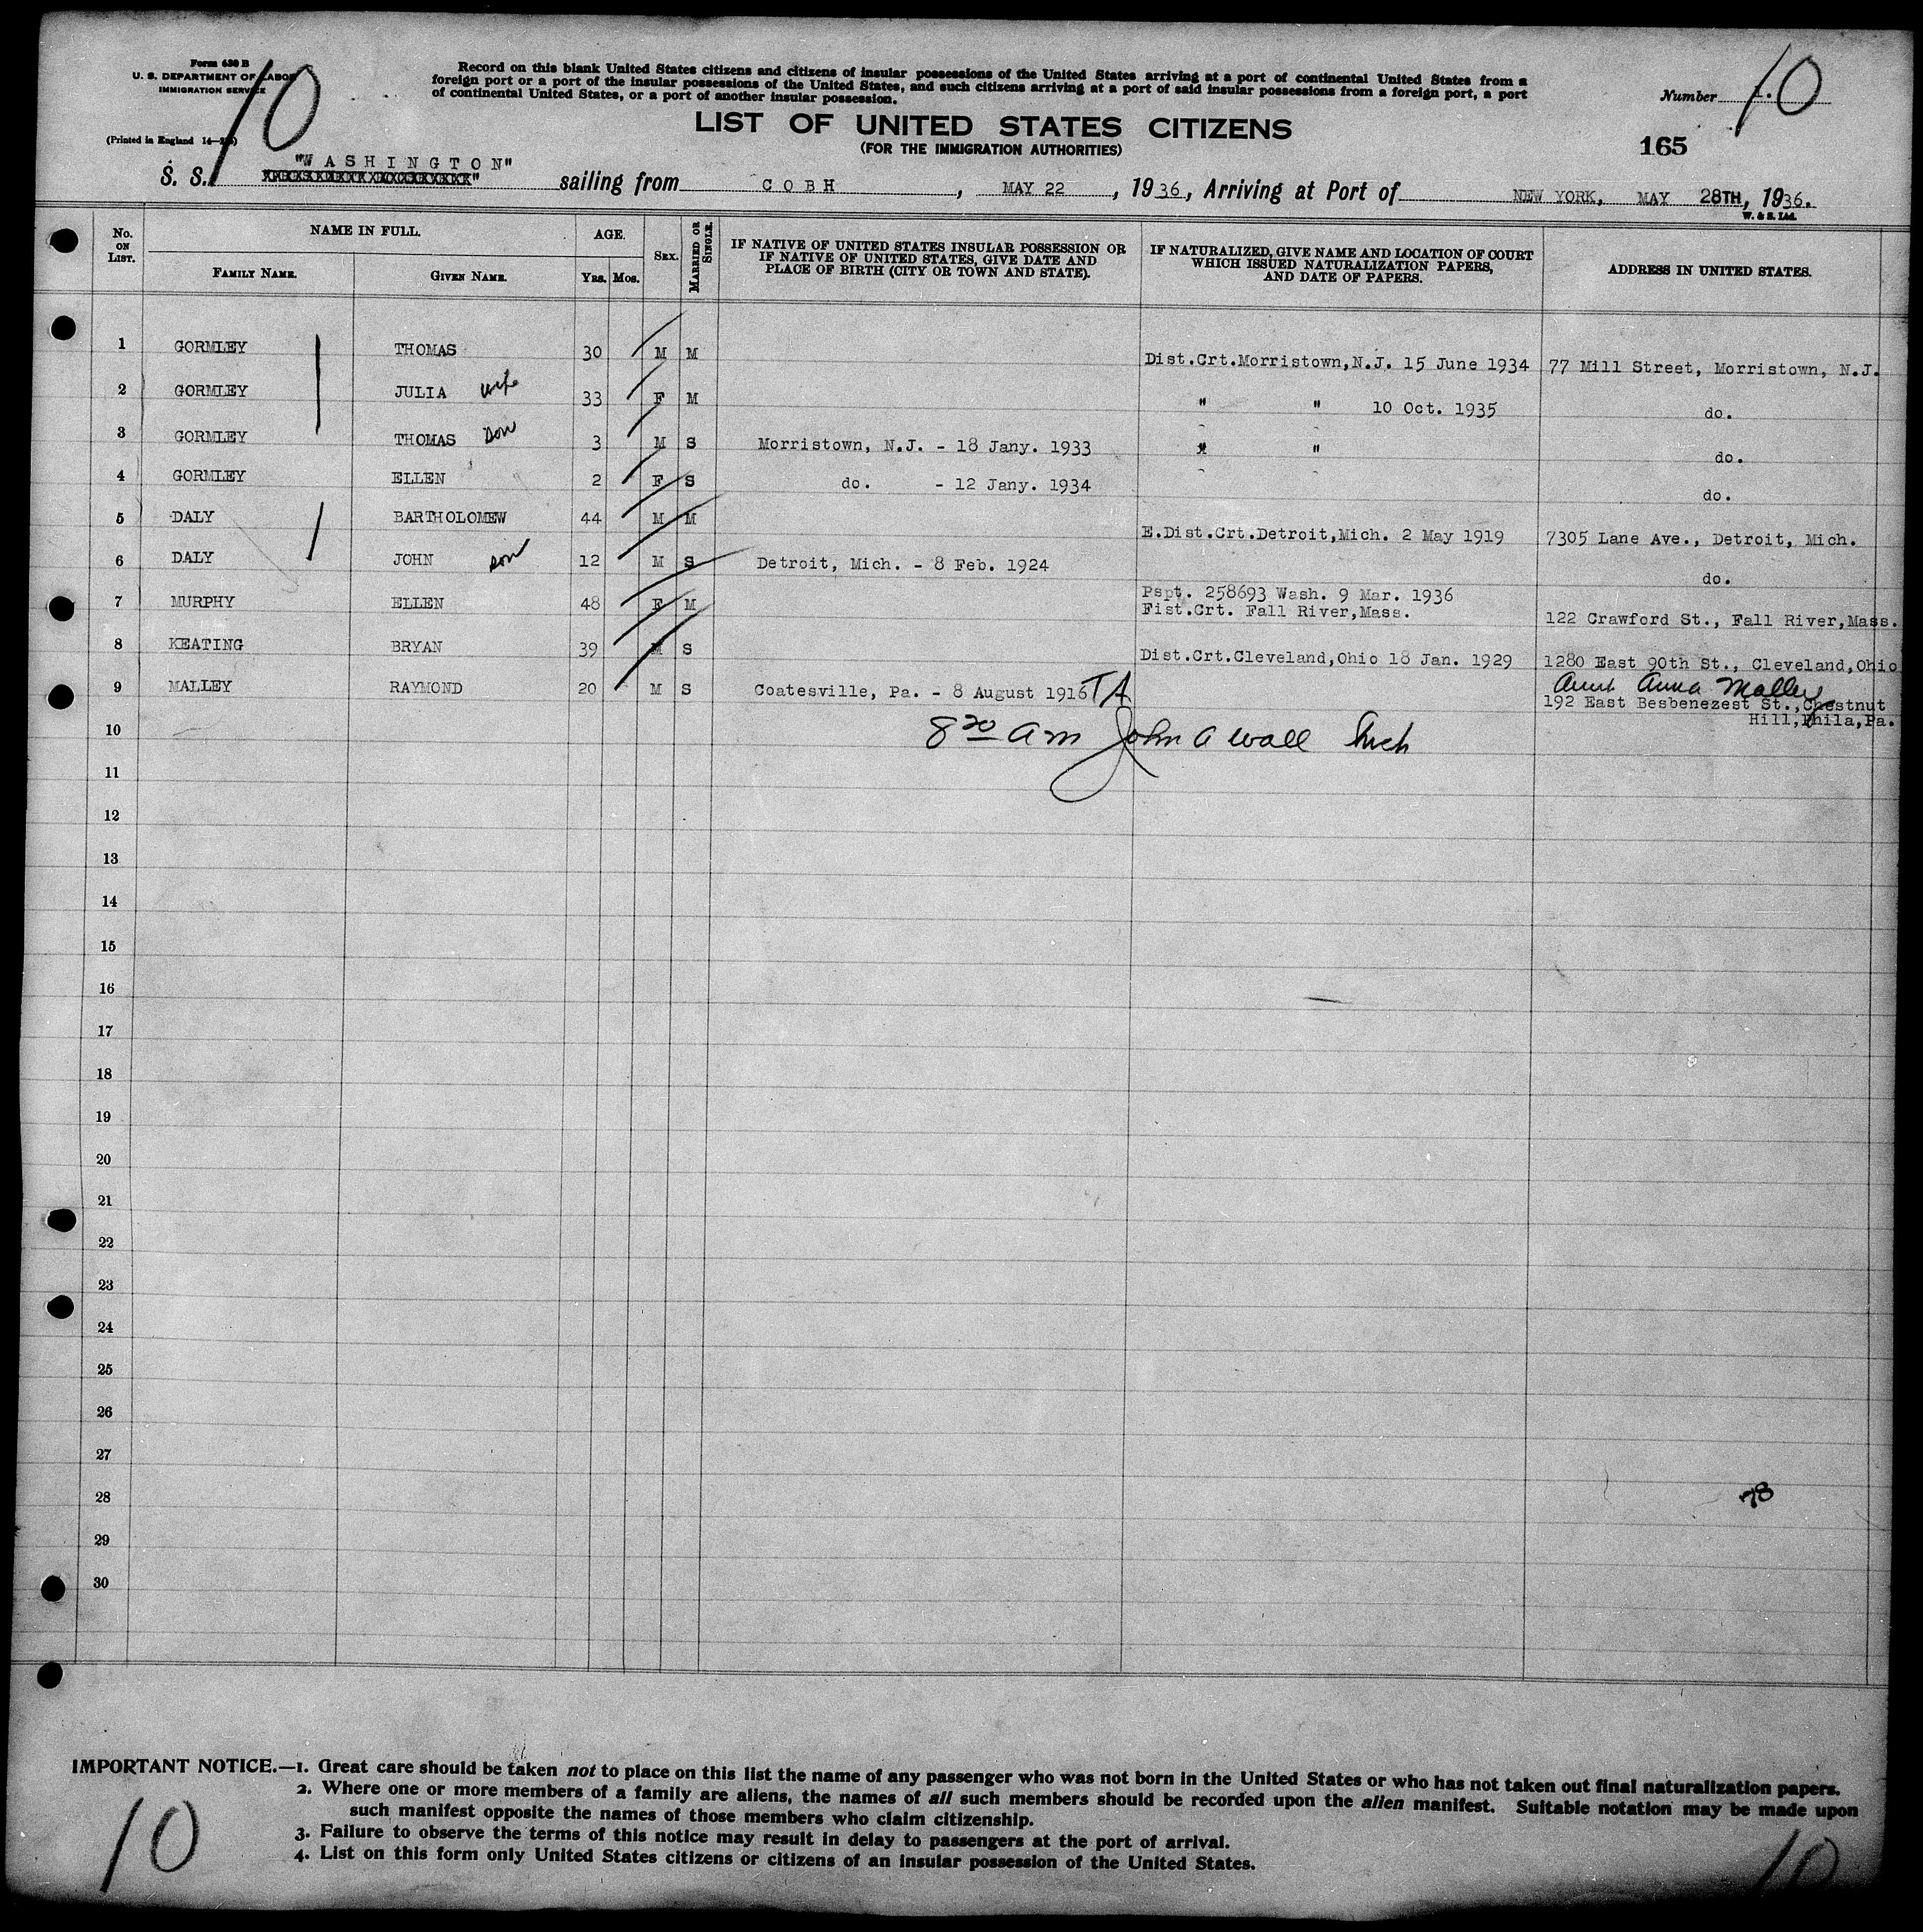 Form 630 B
U. S. DEPARTMENT OF LABOR
IMMIGRATION SERVICE
(Printed in England
10
Record on this blank United States citizens and citizens of insular possessions of the United States arriving at a port of continental United States from a
foreign port or a port of the insular possessions of the United States, and such citizens arriving at a port of said insular possessions from a foreign port, a port
of continental United States, or a port of another insular possession.
Number 10
LIST OF UNITED STATES CITIZENS
(FOR THE IMMIGRATION AUTHORITIES)
165
S. S. "WASHINGTON" sailing from COBH, MAY 22, 1936, Arriving at Port of NEW YORK, MAY 28TH, 1936.
W. & S. Ltd.
No. ON LIST. NAME IN FULL. FAMILY NAME. GIVEN NAME. AGE. Yrs. Mos. SEX. MARRIED OR SINGLE. IF NATIVE OF UNITED STATES INSULAR POSSESSION OR IF NATIVE OF UNITED STATES, GIVE DATE AND PLACE OF BIRTH (CITY OR TOWN AND STATE). IF NATURALIZED, GIVE NAME AND LOCATION OF COURT WHICH ISSUED NATURALIZATION PAPERS, AND DATE OF PAPERS. ADDRESS IN UNITED STATES.
1 GORMLEY THOMAS 30 M M Dist.Crt.Morristown,N.J. 15 June 1934 77 Mill Street, Morristown, N.J.
2 GORMLEY JULIA wife 33 F M " " 10 Oct. 1935 do.
3 GORMLEY THOMAS son 3 M S Morristown, N.J. - 18 Jany. 1933 " " do.
4 GORMLEY ELLEN 2 F S do. - 12 Jany. 1934 do.
5 DALY BARTHOLOMEW 44 M M E.Dist.Crt.Detroit,Mich. 2 May 1919 7305 Lane Ave., Detroit, Mich.
6 DALY JOHN son 12 M S Detroit, Mich. - 8 Feb. 1924 do.
7 MURPHY ELLEN 48 F M Pspt. 258693 Wash. 9 Mar. 1936
Fist.Crt. Fall River,Mass. 122 Crawford St., Fall River,Mass.
8 KEATING BRYAN 39 M S Dist.Crt.Cleveland,Ohio 18 Jan. 1929 1280 East 90th St., Cleveland,Ohio
9 MALLEY RAYMOND 20 M S Coatesville, Pa. - 8 August 1916 TA Aunt Anna Malley
192 East Besbenezest St.,Chestnut
Hill,Phila,Pa.
10 8 20 am John A Wall
11
12
13
14
15
16
17
18
19
20
21
22
23
24
25
26
27
28
78
29
30
IMPORTANT NOTICE.—1. Great care should be taken not to place on this list the name of any passenger who was not born in the United States or who has not taken out final naturalization papers.
2. Where one or more members of a family are aliens, the names of all such members should be recorded upon the alien manifest. Suitable notation may be made upon
such manifest opposite the names of those members who claim citizenship.
3. Failure to observe the terms of this notice may result in delay to passengers at the port of arrival.
4. List on this form only United States citizens or citizens of an insular possession of the United States.
10
10